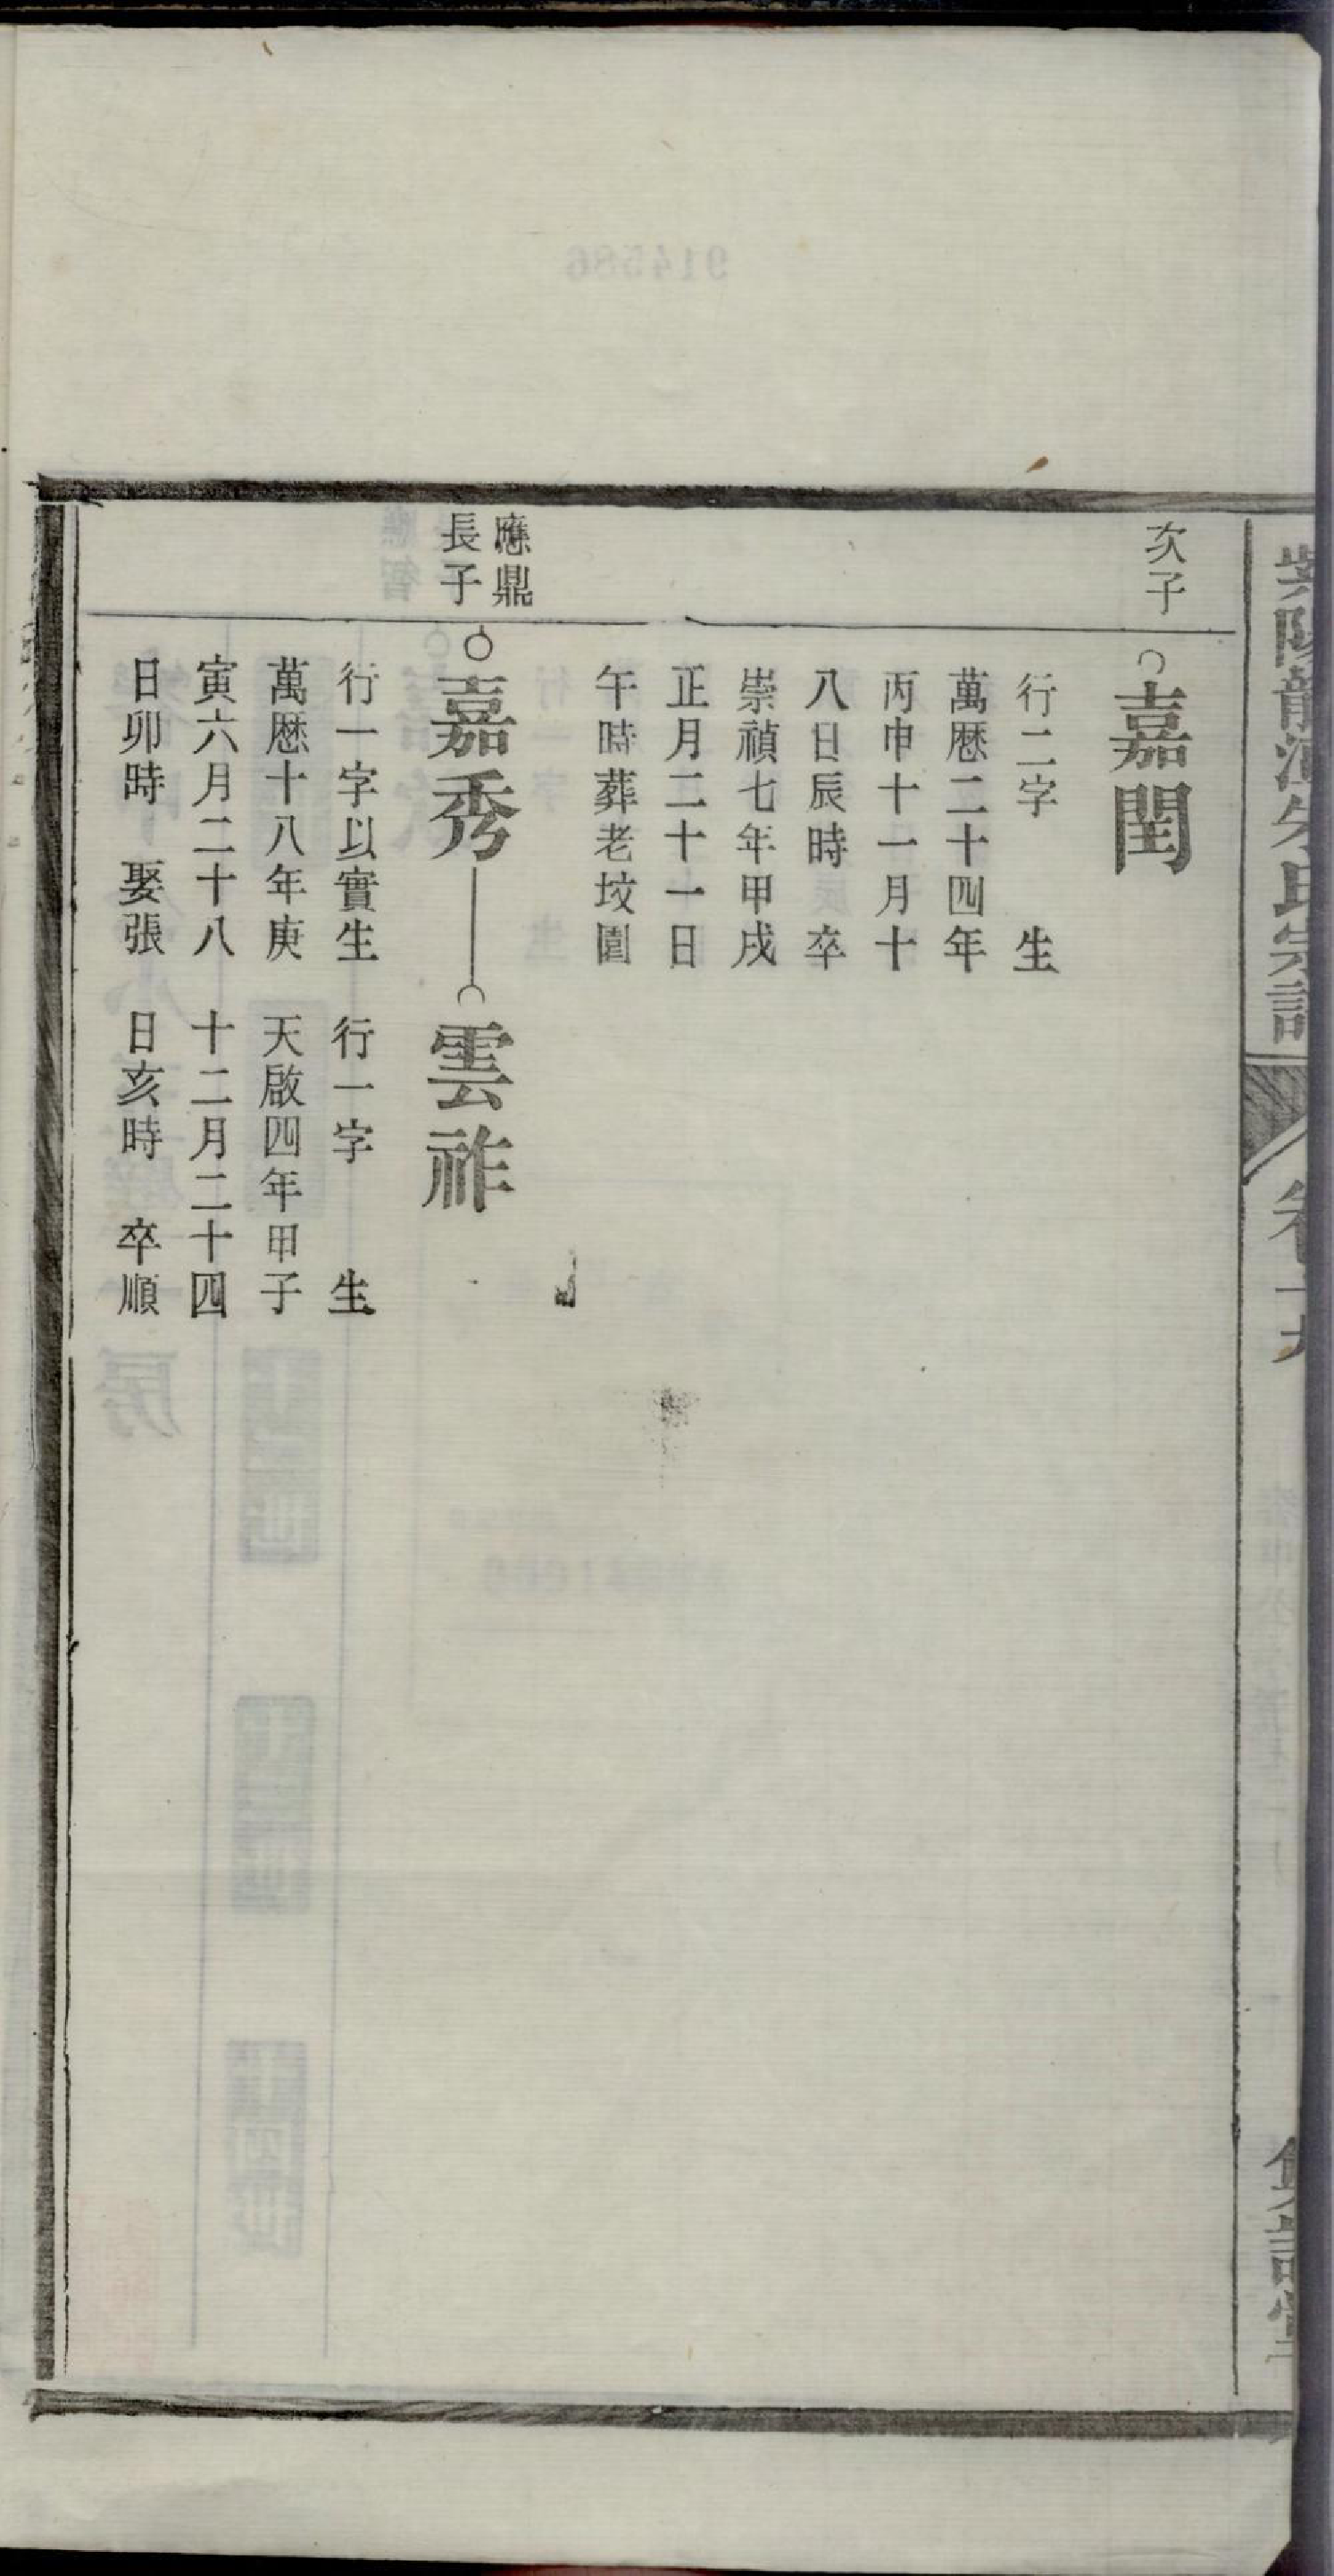 次子
嘉閏
行二字 生
萬曆二十四年
丙申十一月十
八日辰時 卒
崇禎七年甲戌
正月二十一日
午時葬老坟園
應鼎
長子
嘉秀
行一字以實生
萬曆十八年庚
寅六月二十八
日卯時 娶張
雲祚
行一字 生
天啟四年甲子
十二月二十四
日亥時 卒順